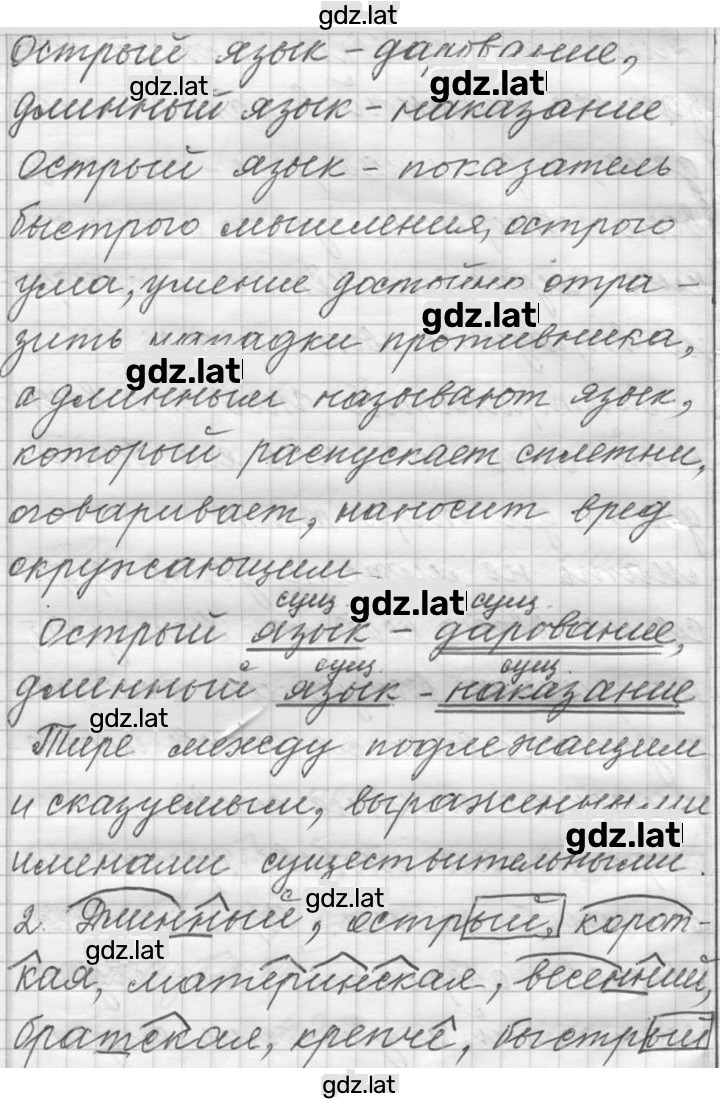 gdz.lat
Острый язык - дарование,
gdz.lat gdz.lat
длинный язык - наказание
Острый язык - показатель
быстрого мышления, острого
ума, умение достойно отра-
gdz.lat
зить нападки противника,
gdz.lat
а длинным называют язык,
который распускает сплетни,
оговаривает, наносит вред
окружающим.
сущ. gdz.lat сущ.
Острый язык - дарование,
сущ. сущ.
длинный язык - наказание
gdz.lat
Тире между подлежащим
и сказуемым, выраженными
gdz.lat
именами существительными.
gdz.lat
2. Длинный, острый, корот-
gdz.lat
кая, материнская, весенний,
братская, крепче, быстрый
gdz.lat